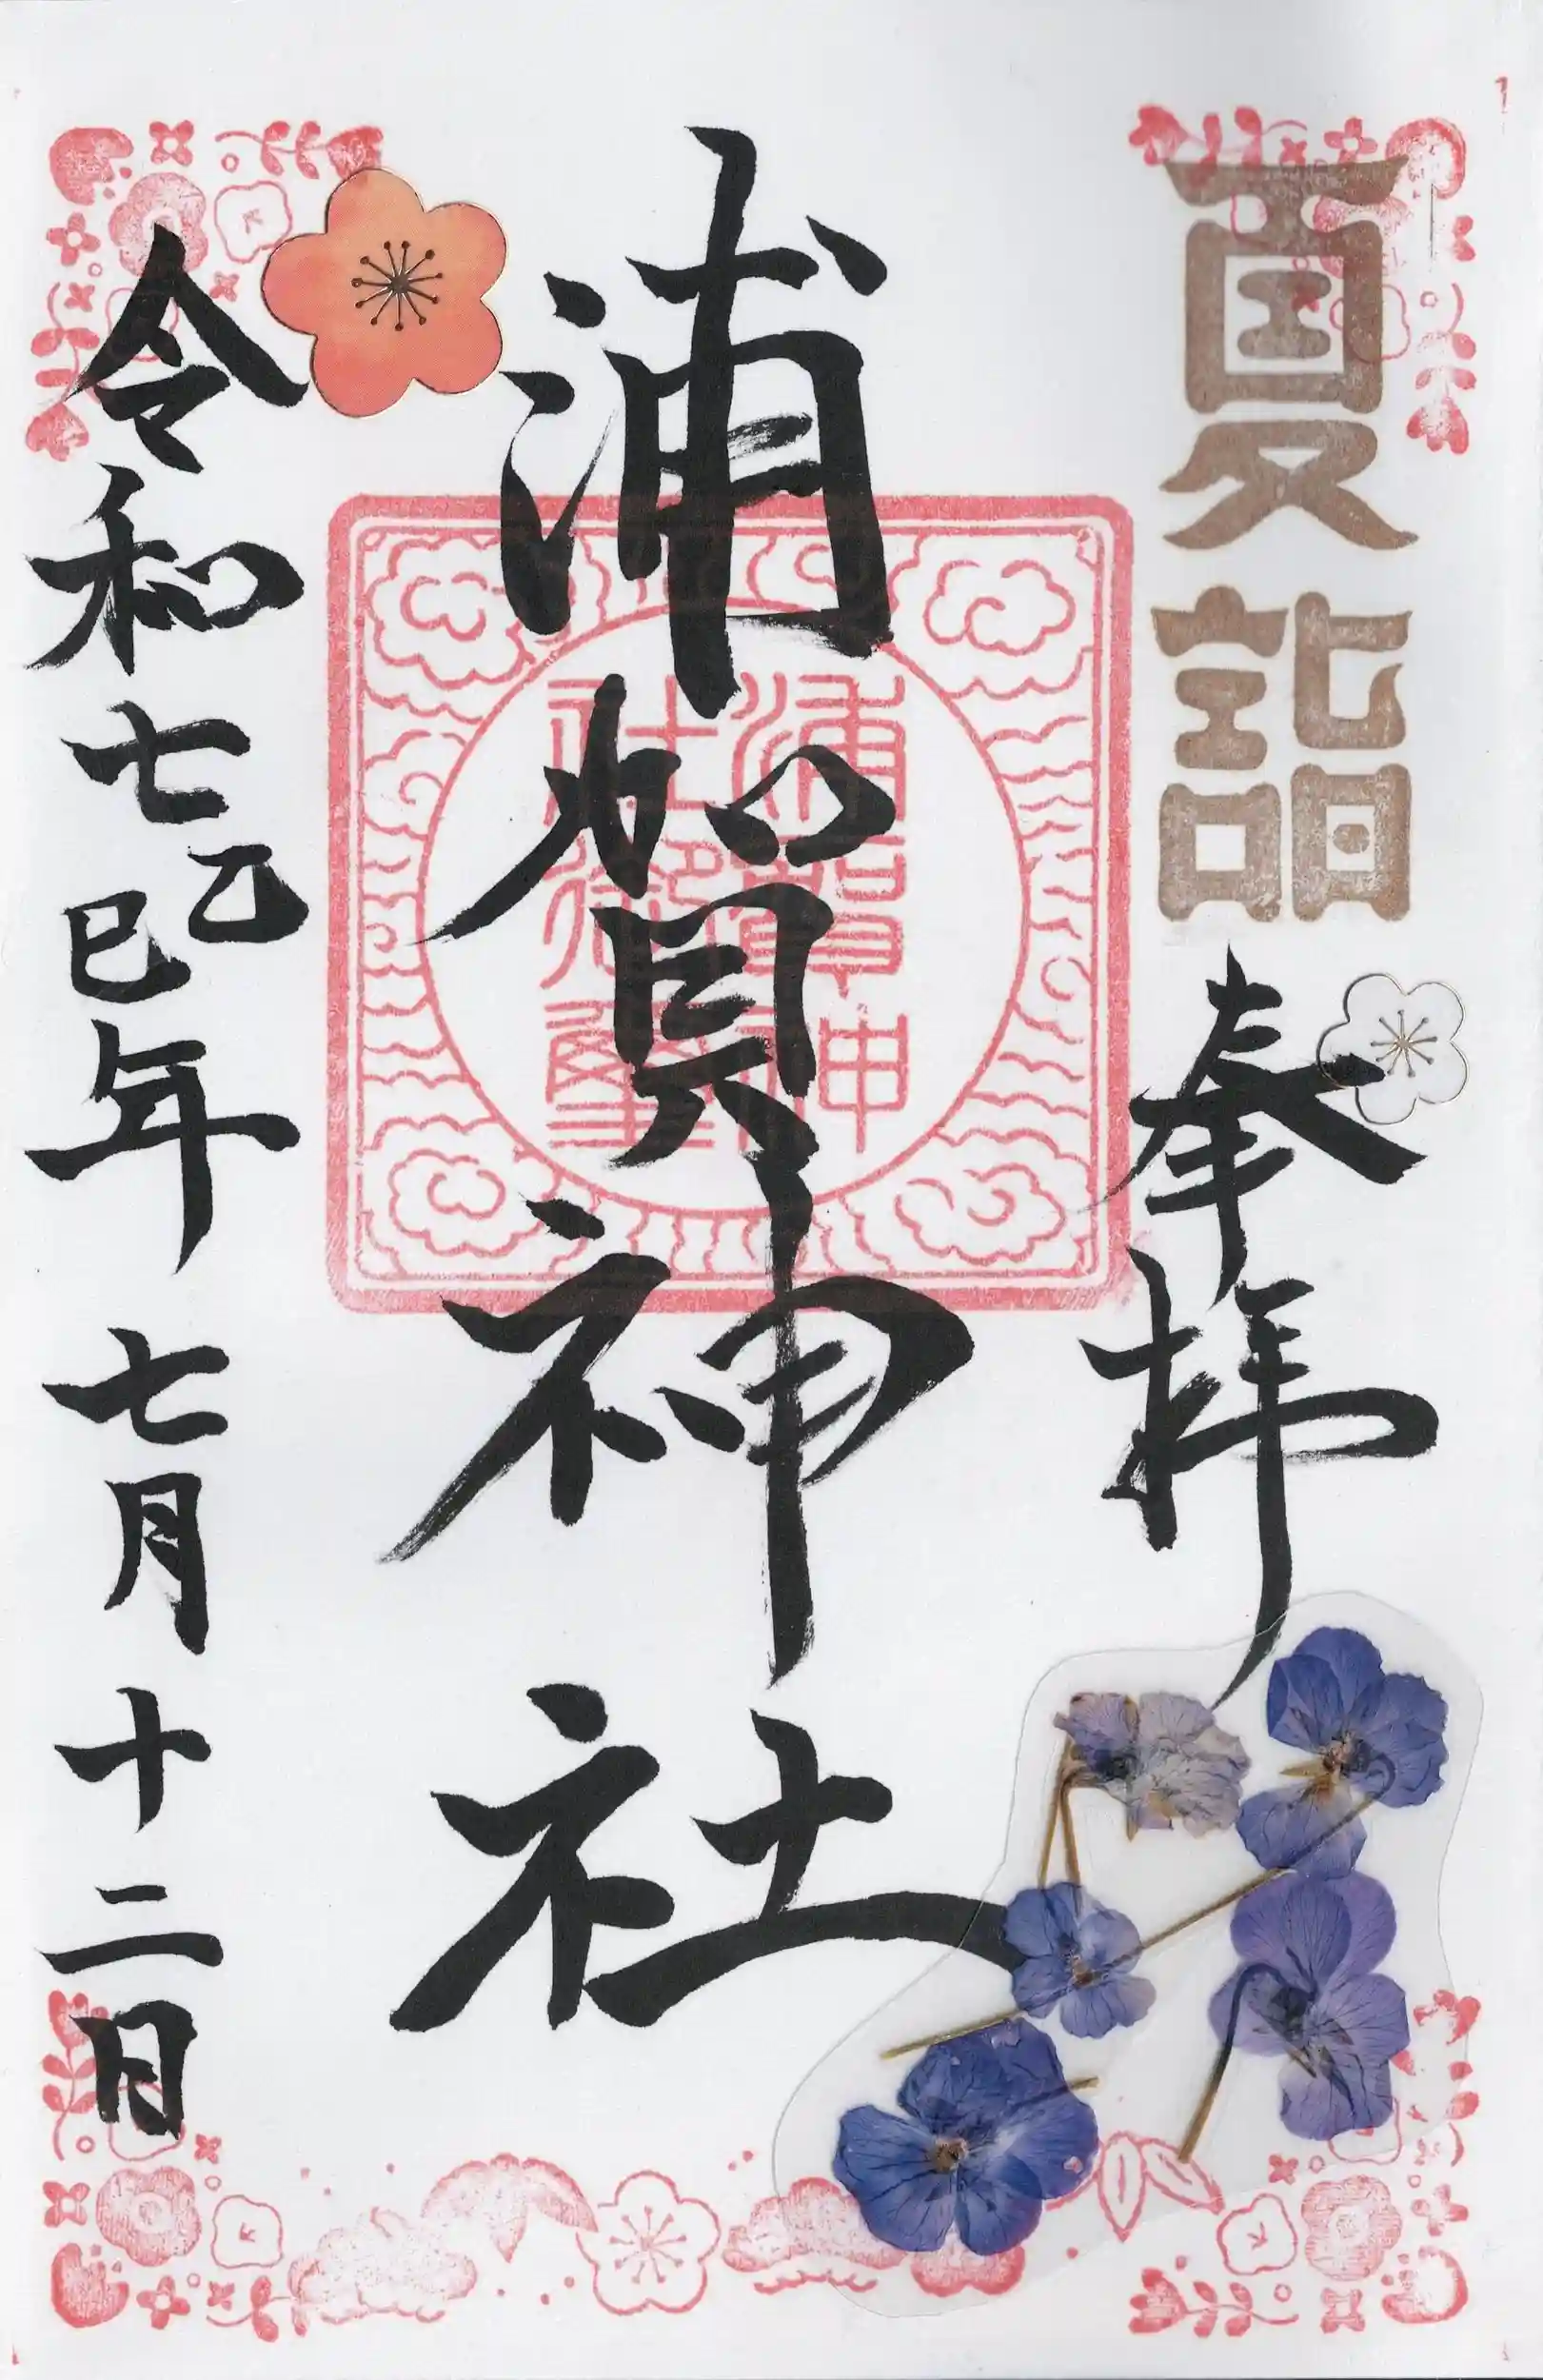 夏詣
奉拝
浦賀神社
浦賀神
社御璽
令和七乙巳年 七月十二日